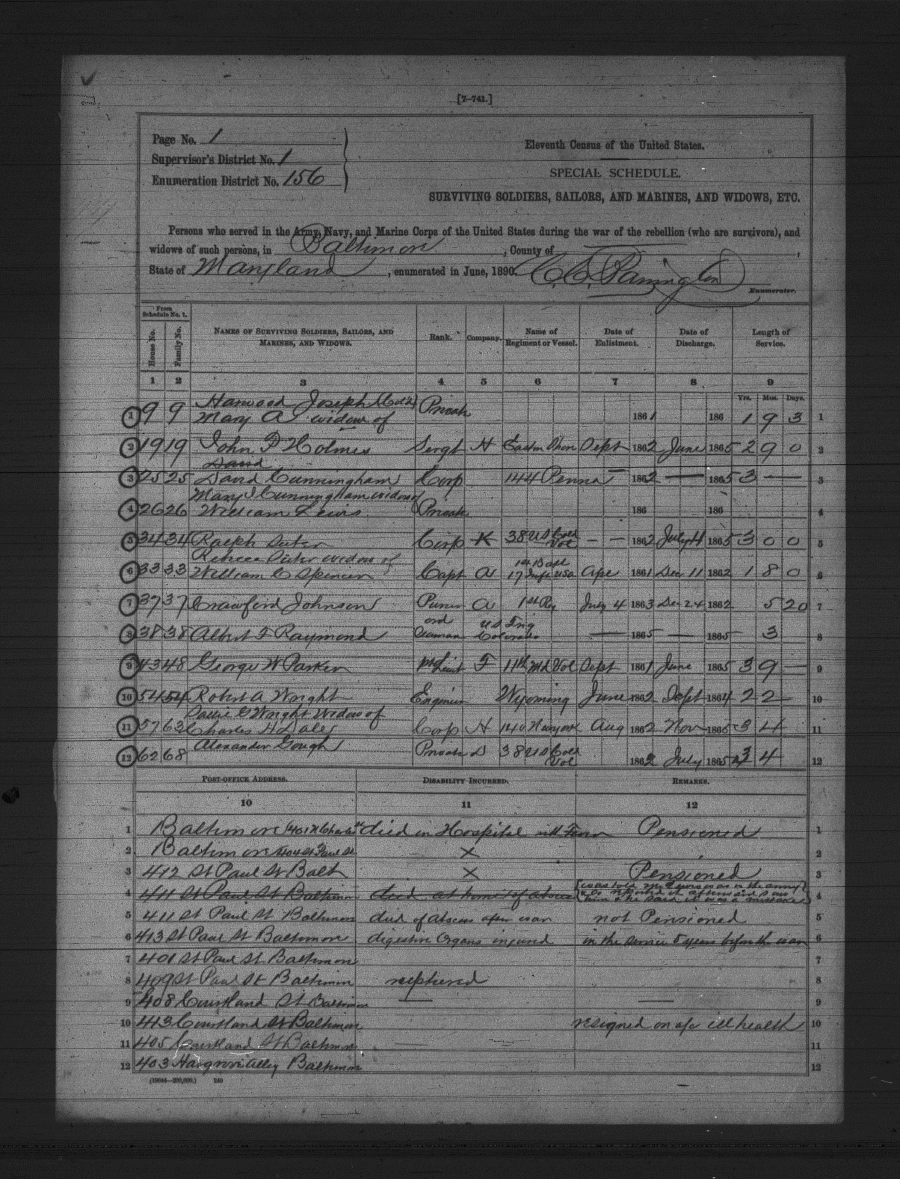 [7-741.]
Page No. 1
Supervisor's District No. 1
Enumeration District No. 156
Eleventh Census of the United States.
SPECIAL SCHEDULE.
SURVIVING SOLDIERS, SAILORS, AND MARINES, AND WIDOWS, ETC.
Persons who served in the Army, Navy, and Marine Corps of the United States during the war of the rebellion (who are survivors), and
widows of such persons, in Baltimore, County of
State of Maryland, enumerated in June, 1890.
Enumerator.
From Schedule No. 1.
House No. Family No. NAMES OF SURVIVING SOLDIERS, SAILORS, AND MARINES, AND WIDOWS. Rank. Company. Name of Regiment or Vessel. Date of Enlistment. Date of Discharge. Length of Service.
1 2 3 4 5 6 7 8 9
Yrs. Mos. Days.
Harwood Joseph
1 9 9 Mary A widow of Private 1861 186 1 9 3 1
2 19 19 John P Holmes Sergt H Eastern Shore Sept 1862 June 1865 2 9 0 2
David
3 25 25 David Cunningham Corp 144 Penna 1862 1865 3 3
Mary J Cunningham widow of
4 26 26 William Lewis Private 186 186 4
5 34 34 Ralph Corp K 38 US Cold Vol 1862 July 4 1865 3 0 0 5
widow of
6 33 33 William C Spencer Capt A 17 Inft USA Apr 1861 Dec 11 1862 1 8 0 6
7 37 37 Crawford Johnson A 1st Reg July 4 1863 Dec 24 1862 5 20 7
8 38 38 Albert F Raymond ord Seaman US Frig Colorado 1865 1865 3 8
9 43 48 George W Parker 1st Lieut F 11th Md Vol Sept 1861 June 1865 3 9 9
10 54 54 Robert A Wright Engineer Wyoming June 1862 Sept 1864 2 2 10
Wright Widow of
11 57 63 Charles H Corp H 140 Aug 1862 Nov 1865 3 4 11
12 62 68 Alexander Gough Private D 38 US Cold Vol 1862 July 1865 3 4 12
POST-OFFICE ADDRESS. DISABILITY INCURRED. REMARKS.
10 11 12
1 Baltimore 1401 N Charles st died in Hospital with Fever Pensioned 1
2 Baltimore St Paul St X 2
3 412 St Paul St Balt X Pensioned 3
4 411 St Paul St Baltimore died at home of abscess was in the army him & he said it was a mistake 4
5 411 St Paul St Baltimore died of abscess after war not Pensioned 5
6 413 St Paul St Baltimore digestive Organs injured in the service 5 years before the war 6
7 401 St Paul St Baltimore 7
8 409 St Paul St Baltimore ruptured 8
9 408 Courtland St Baltimore 9
10 413 Courtland St Baltimore resigned on a/c ill health 10
11 405 Courtland St Baltimore 11
12 403 Hargrove alley Baltimore 12